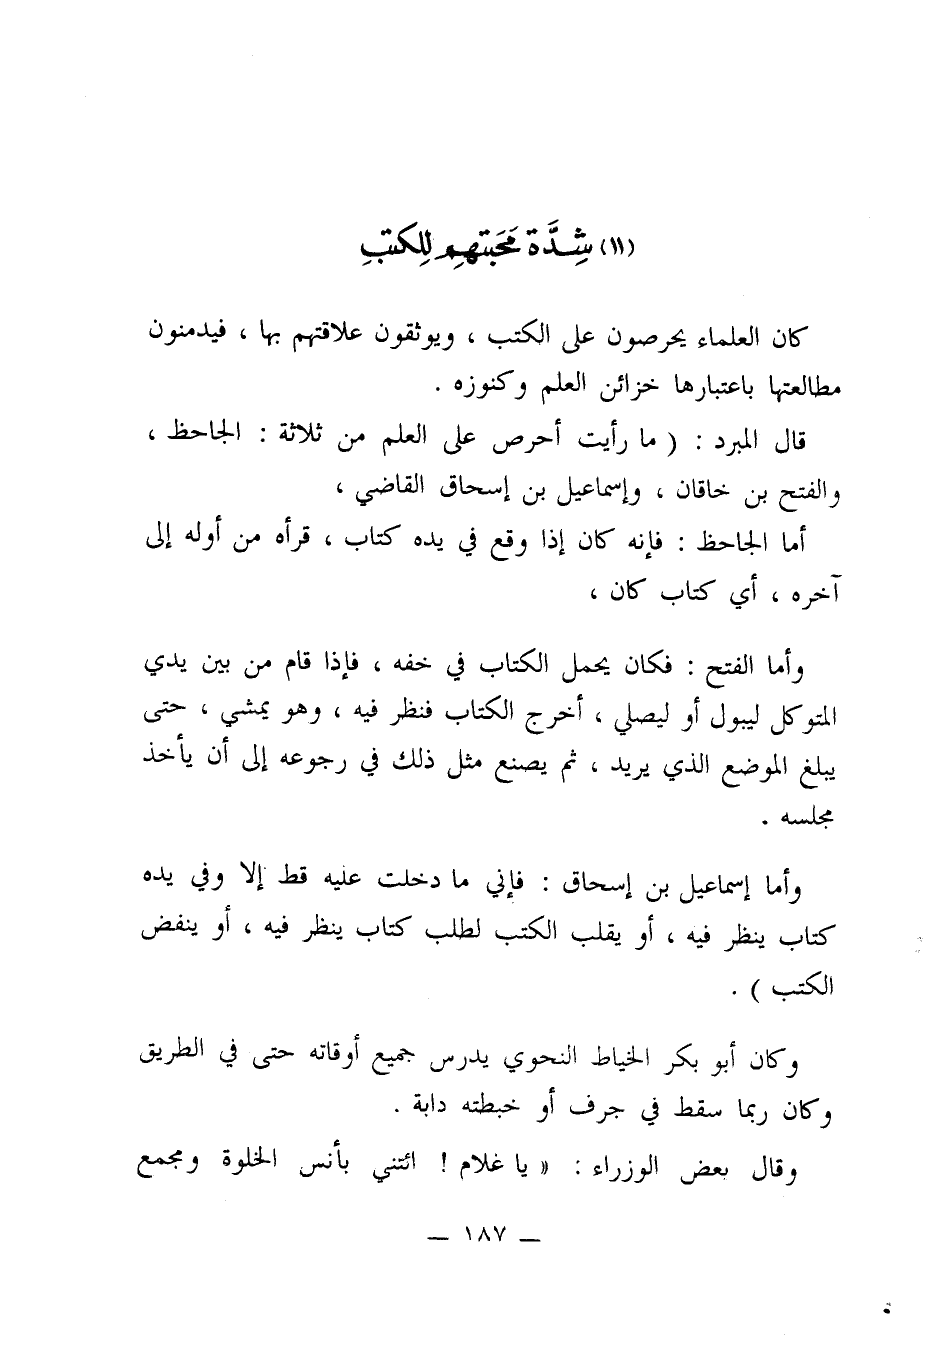 (١١) شِدَّة مَحَبتهِم لِلكتبِ
كان العلماء يحرصون على الكتب ، ويوثقون علاقتهم بها ، فيدمنون
مطالعتها باعتبارها خزائن العلم وكنوزه .
قال المبرد : ( ما رأيت أحرص على العلم من ثلاثة : الجاحظ ،
والفتح بن خاقان ، وإسماعيل بن إسحاق القاضي ،
أما الجاحظ : فإنه كان إذا وقع في يده كتاب ، قرأه من أوله إلى
آخره ، أي كتاب كان ،
وأما الفتح : فكان يحمل الكتاب في خفه ، فإذا قام من بين يدي
المتوكل ليبول أو ليصلي ، أخرج الكتاب فنظر فيه ، وهو يمشي ، حتى
يبلغ الموضع الذي يريد ، ثم يصنع مثل ذلك في رجوعه إلى أن يأخذ
مجلسه .
وأما إسماعيل بن إسحاق : فإني ما دخلت عليه قط إلا وفي يده
كتاب ينظر فيه ، أو يقلب الكتب لطلب كتاب ينظر فيه ، أو ينفض
الكتب ) .
وكان أبو بكر الخياط النحوي يدرس جميع أوقاته حتى في الطريق
وكان ربما سقط في جرف أو خبطته دابة .
وقال بعض الوزراء : « يا غلام ! ائتني بأنس الخلوة ومجمع
— ١٨٧ —